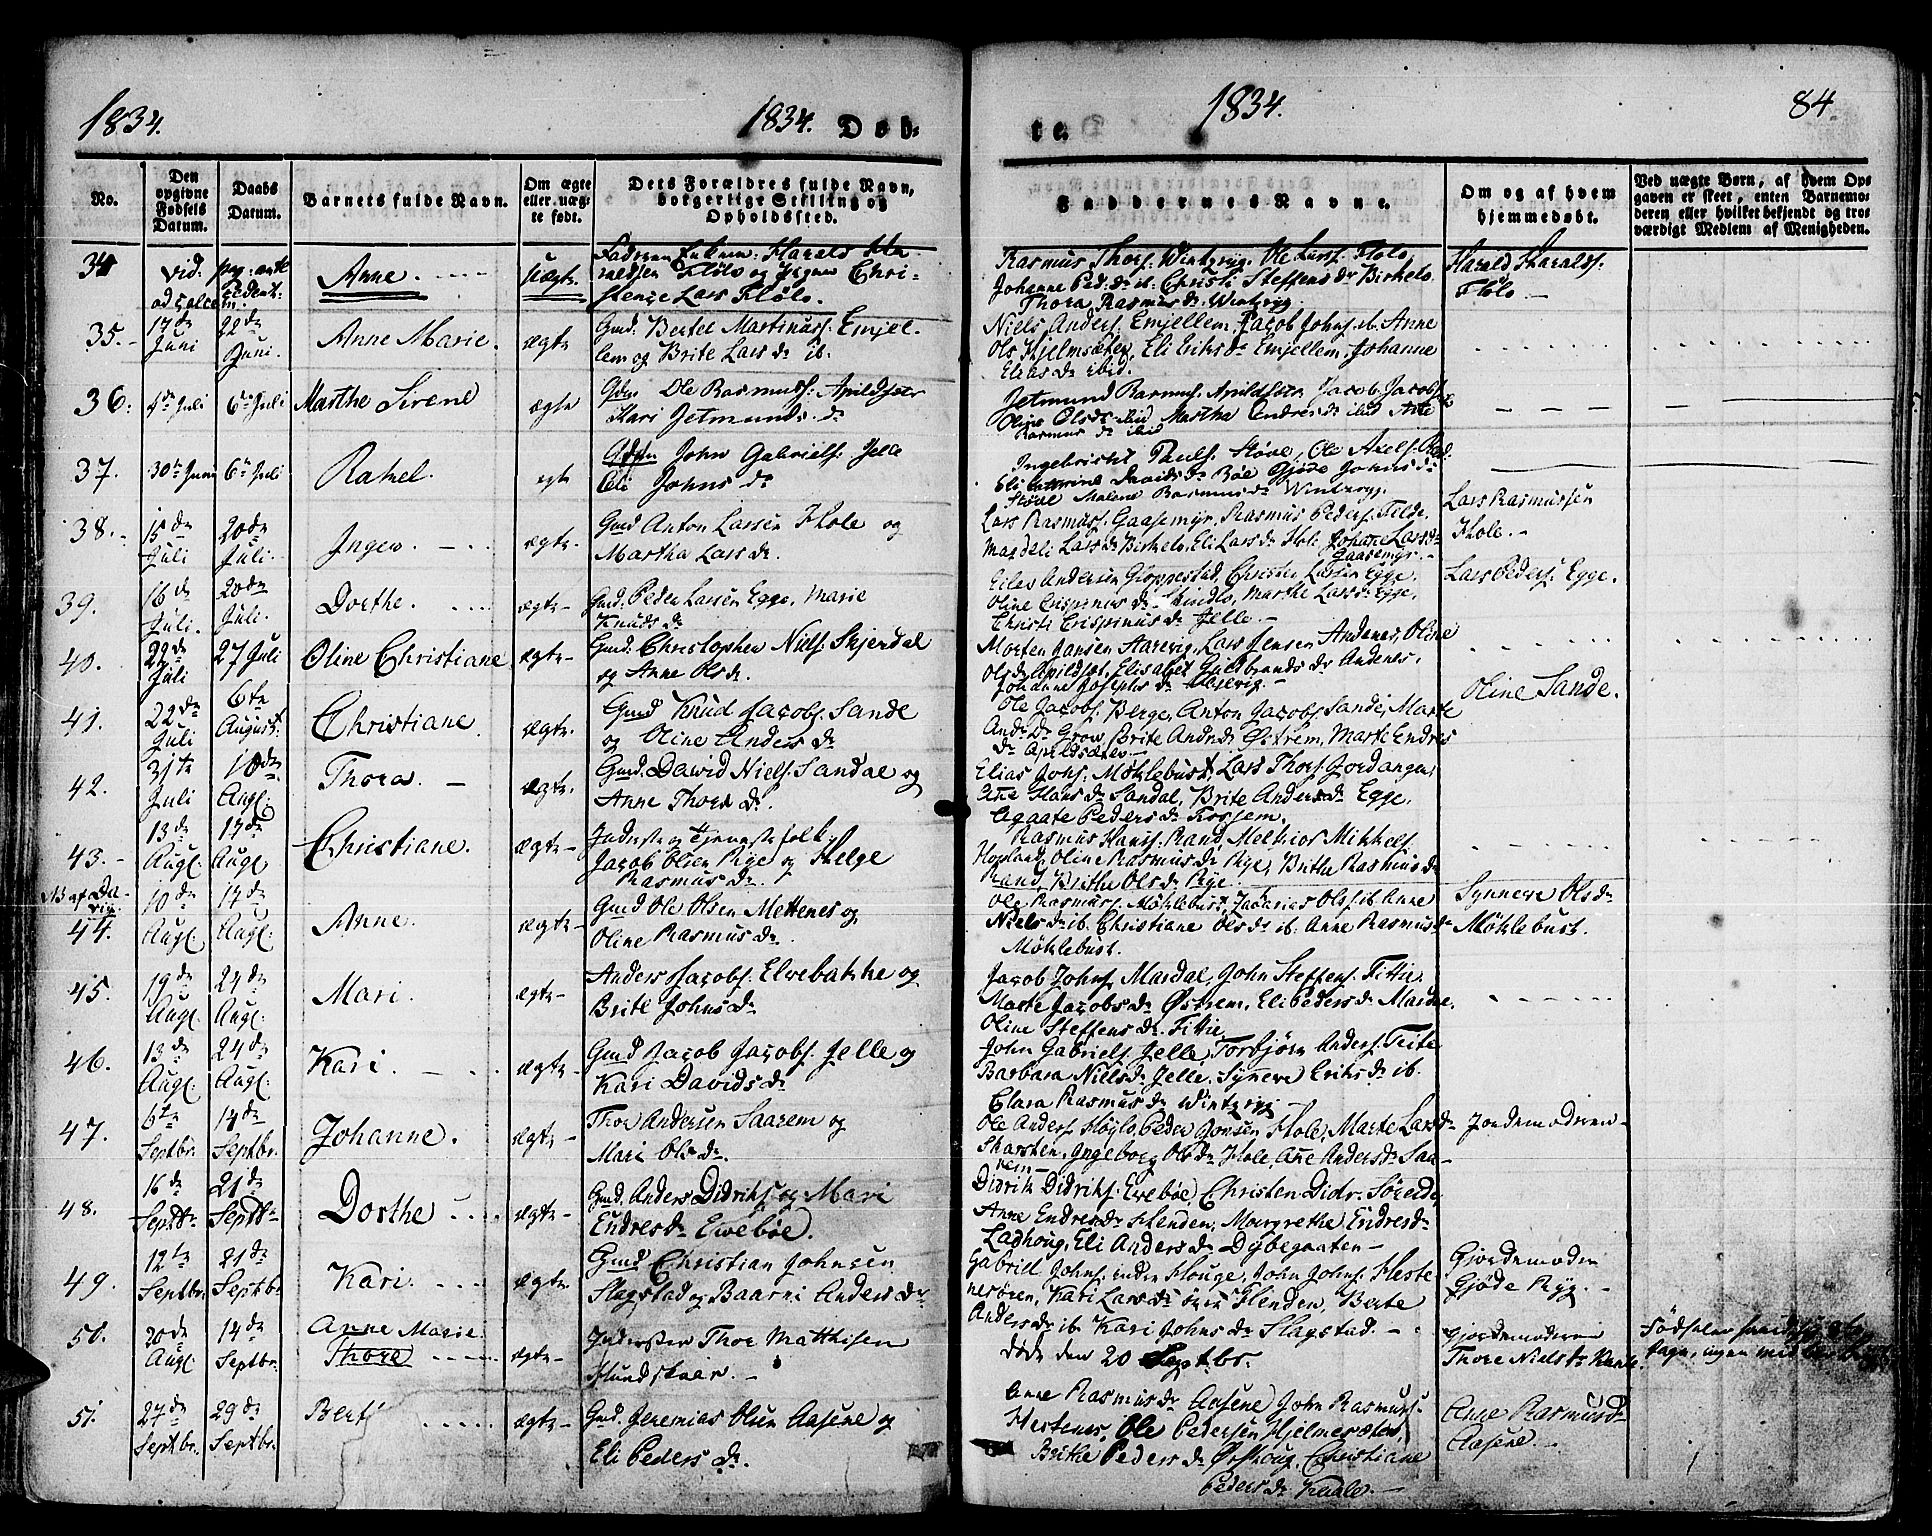 1834.
1834. Døb-
te.
1834.
84.
No.
Den opgivne Fødsels Datum.
Daabs Datum.
Barnets fulde Navn.
Om ægte eller uægte født.
Dets Forældres fulde Navn, borgerlige Stilling og Opholdssted.
Faddernes Navne.
Om og af hvem hjemmedøbt.
Ved uægte Børn, af hvem Opgaven er skeet, enten Barnemoderen eller hvilket bekjendt og troværdigt Medlem af Menigheden.
34
vid. pag: ante
ad calcem
Anne.
uægte
Faderen Harald Haraldsen Flølo og Pigen Christense Lars Flølo.
Rasmus Thors. Wintervig. Ole Lars. Flølo,
Johanne Ped. dr ib. Christi Steffens dr Birkelo
Thora Rasmus dr Wintervig.
Harald Haralds.
Flølo
35.
17de Juni
22de Juni.
Anne Marie.
ægte
Gmd. Bertel Martinuss. Emjel-
lem og Brite Lars dr ib.
Niels Anders. Emjellem, Jacob Johns. ib. Anne
Ols Hjelmsæter, Eli Eriks dr Emjellem, Johanne
Elias dr ibid.
36.
4de Juli
6te Juli
Marthe Sirene
ægte
Ole Rasmuss: Apildseter
Kari Jetmunds dr
Jetmund Rasmus. Apildsetr. Jacob Jacobs.
Oline Olsdr ibid Martha Endres dr ibid
Rasmus dr ibid
37.
30te Juni
6te Juli
Rahel.
egte
John Gabriels. Jelle
Eli Johns dr
Ingebricht Pauls. Støve, Ole Axels.
Davids dr Bøe Gjøde Johns dr
Støve Malene Rasmus dr Wintervig.
38.
15de Juli
20de Juli.
Inger.
ægte
Gmd Anton Larsen Hole og
Martha Lars dr.
Lars Rasmuss. Gaasemyr. Rasmus Peders. Felde.
Magdeli Lars dr Birkelo, Eli Lars dr Hole Johane Lars dr
Gaasemyr.
Lars Rasmussen
Hole.
39.
16de Juli.
20de Juli.
Dorthe.
ægte
Gmd. Peder Larsen Egge, Marie
Knuds dr
Eilev Andersen Gloppestad, Christen Larsen Egge,
Oline Crispinus dr Marthe Lars dr Egge,
Christi Crispinus dr Jelle.
Lars Peders. Egge.
40.
22de Juli
27 Juli
Oline Christiane
ægte
Gmd. Christopher Niels. Skjerdal
og Anne Ols dr.
Morten Jansen Aarevig, Lars Jensen Andenes, Oline
Ols dr Apildset, Elisabet Guldbrands dr Andenes,
Johanne Josephs dr
41.
22de Juli
6te August
Christiane
ægte
Gmd Knud Jacobs. Sande
og Oline Anders dr
Ole Jacobs. Berge, Anton Jacobs Sande, Marte
And. Dr Grov, Brite And. dr Østrem, Marte Endres
dr Apeldsæter.
Oline Sande.
42.
31te Juli
10de Augl.
Thora.
ægte.
Gmd. David Niels. Sandal og
Anne Thors dr.
Elias Johs. Møklebust, Lars Thors. Jordanger,
Ane Hans dr Sandal, Brite Anders dr Egge,
Agaate Peders dr Fossem.
43.
13de Augl.
17de Augl.
Christiane.
ægte
Inderste og tjenestefolk
Jacob Olsen Rye og Helge
Rasmus dr.
Rasmus Hans. Rand, Melkior Mikkels.
Hopland, Oline Rasmus dr Rye, Brithe Rasmus dr
Rand, Brithe Ols dr Rye.
NB af Da-
vig
44.
10de Augl.
17de Augl.
Anne.
ægte
Gmd Ole Olsen Mettenes og
Oline Rasmus dr.
Ole Rasmuss. Møklebust, Zakarias Ols. ib Anne
Niels dr ib. Christiane Ols dr ib. Anne Rasmus dr
Møklebust.
Synneve Ols dr
Møklebust.
45.
19de Augl.
24de Augl.
Mari.
ægte
Anders Jacobs. Elvebakke og
Brite Johns dr
Jacob Johns. Mardal, John Steffens. Tittie,
Marte Jacobs dr Østrem, Eli Peders dr
Oline Steffens dr. Tittie
46.
13de Augl.
24de Augl.
Kari.
ægte
Gmd Jacob Jacobs. Jelle og
Kari Davids dr
John Gabriels. Jelle, Torbjørn Anders. Teite
Barbara Niels dr Jelle, Synneve Eriks dr ib.
Clara Rasmus dr Wintervig
47.
6te Septbr.
14de Septbr.
Johanne.
ægte
Thor Andersen Saarem og
Mari Ols dr.
Ole Anders. Peder Jonsen Hole, Marte Lars dr
Skarsten, Ingeborg Ols dr Hole, Ane Anders dr Saa-
rem
Jordemoderen
48.
16de Septbr
21de Septbr
Dorthe
ægte
Gmd. Anders Didriks og Mari
Endres dr Evebøe.
Didrik Didriks. Evebøe, Christen Didr. Søreide,
Anne Endres dr Henden, Margrethe Endres dr
Ladhoug, Eli Anders dr Dybegaaten
49.
12te Septbr.
21de Septbr.
Kari.
ægte
Gmd Christian Johnsen
Slagstad og Baarni Anders dr
Gabriel Johns. Houge, John Johns. Heste-
nesøren, Kari Lars dr Henden, Berte
Anders dr ib. Kari Johns dr Slagstad.
Gjordemoder
Gjøde Ryg.
50.
20de Augl
14de Septbr.
Anne Marie
Thore
ægte
Indersten Thor Matthisen
Hundskaar.
døde den 20 Septbr.
Gjordemoderen
Thore Niels dr
Fødselen
51.
27de Septbr.
29de Septbr.
Berte
ægte
Gmd. Jeremias Olsen Aasene og
Eli Peders dr.
Anne Rasmus dr Aasene, John Rasmus.
Hestenes, Ole Pedersen Hjelmesæter,
Brithe Peders dr Ørshoug, Christiane
Peders dr
Anne Rasmus dr
Aasene.